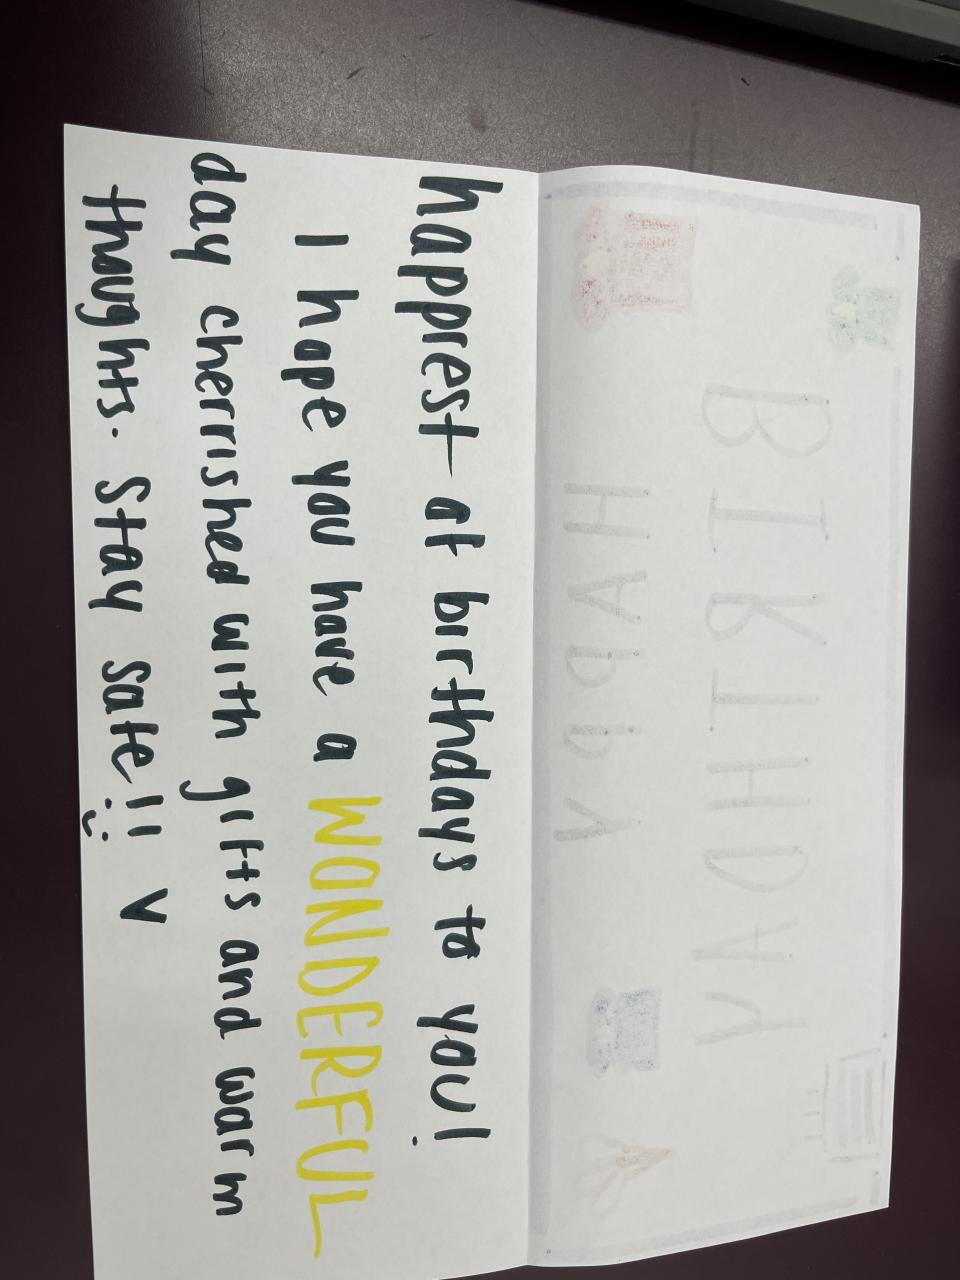 BIRTHDAY
HAPPY
happiest at birthdays to you!
I hope you have a WONDERFUL
day cherrished with gifts and warm
thoughts. Stay safe!!